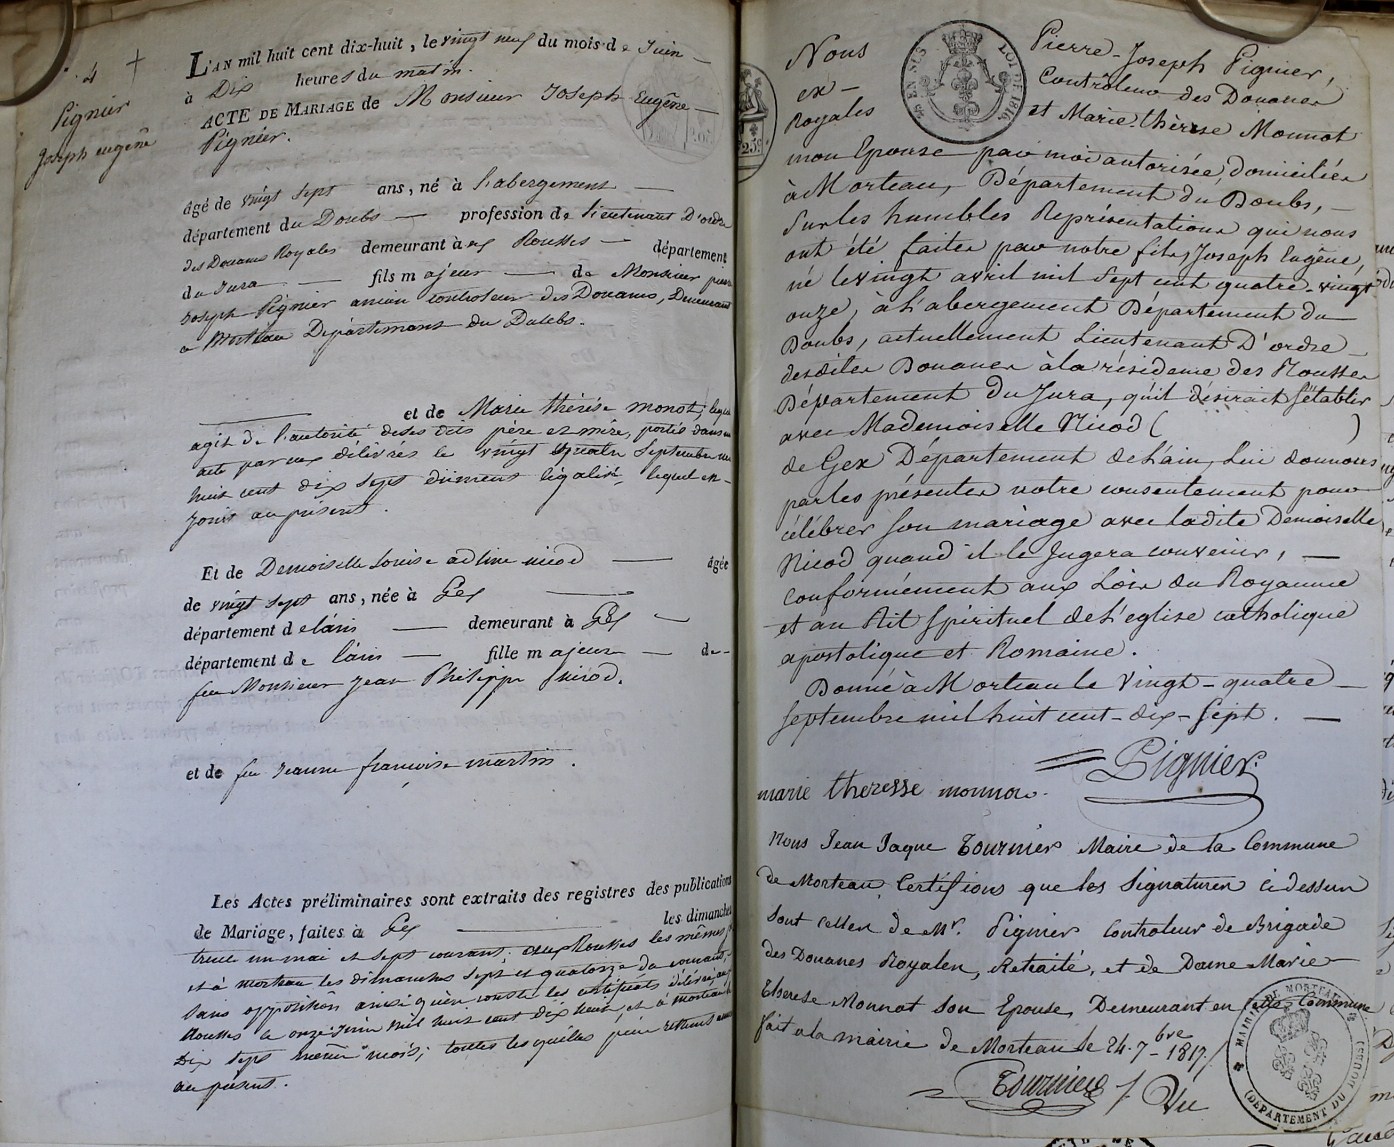 4 +
Pignier
Joseph eugêne
L'AN mil huit cent dix-huit, le vingt neuf du mois de Juin
à Dix heures du matin.
ACTE DE MARIAGE de Monsieur Joseph Eugêne
Pignier.
âgé de vingt sept ans, né à l'abergement
département du Doubs profession de lieutenant D'ordre
des Douanes Royales demeurant à aux Rousses département
du Jura fils majeur de Monsieur pierre
Joseph Pignier ancien controleur des Douanes, Demeurant
a Morteau Département du Doubs.
et de Marie thérése monot, lequel
agit de l'autorité de ses dits père et mère, portée dans un
acte par eux délivrés le vingt quatre Septembre mil
huit cent dix sept dûment légalisé, lequel est
joint au présent.
Et de Demoiselle Louise adline nicod âgée
de vingt sept ans, née à Gex
département de l'ain demeurant à Gex
département de l'ain fille majeure de
feu Monsieur Jean Philippe nicod.
et de feu Jeanne françoise martin.
Les Actes préliminaires sont extraits des registres des publications
de Mariage, faites à Gex les dimanches
trente un mai et sept courant; aux Rousses les mêmes
et à morteau les dimanches sept et quatorze du courant,
sans opposition ainsi qu'en conste les certificats délivrés aux
Rousses le onze Juin mil huit cent dix huit et à morteau le
Dix sept même mois; toutes lesquelles pour rester
au présent.
25c
EN SUS
LOI DE 1816
Nous Pierre-Joseph Pignier,
ex- Contrôleur des Douanes
Royales et Marie-thèrese Monnot
mon Epouse par moi autorisée, domiciliés
à Morteau, Département du Doubs,
Sur les humbles Représentations qui nous
ont été faites par notre fils, Joseph Eugêne,
né le vingt avril mil sept cent quatre-vingt
onze, à L'abergement Département du
Doubs, actuellement Lieutenant D'ordre
desdites Douanes à la résidence des Rousses
Département du Jura, qu'il désirait s'établir
avec Mademoiselle Nicod ( )
de Gex Département de L'ain, Lui donnons
par les présentes notre consentement pour
célébrer son mariage avec Ladite Demoiselle
Nicod quand il le Jugera convenir,
conformément aux Loix du Royaume
et au Rit Spirituel de L'eglise catholique
apostolique et Romaine.
Donné à Morteau le Vingt-quatre
Septembre mil huit cent-dix-Sept.
Pignier
marie theresse monnot.
Nous Jean Jaque Tournier Maire de la Commune
de Morteau, Certifions que les Signatures ci dessus
Sont celles de Mr. Pignier Controleur de Brigade
des Douanes Royales, Retraité, et de Dame Marie
Therese Monnot Son Epouse, Demeurant en cette Commune
fait a la mairie de Morteau le 24. 7bre 1817.
Tournier
Vu
MAIRIE DE MORTEAU
(DÉPARTEMENT DU DOUBS)